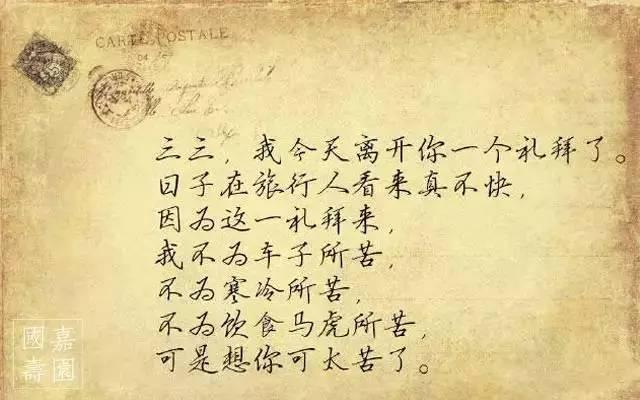 CARTE POSTALE
三三，我今天离开你一个礼拜了。
日子在旅行人看来真不快，
因为这一礼拜来，
我不为车子所苦，
不为寒冷所苦，
不为饮食马虎所苦，
可是想你可太苦了。
國嘉
壽園